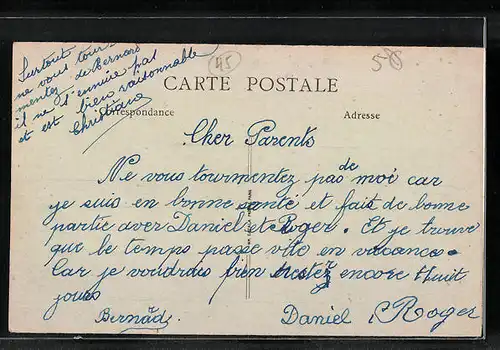 Surtout
ne vous tour
mentez de Bernard
il ne s'ennuie pas
et est bien raisonnable
Christiane
45
58
CARTE POSTALE
Correspondance
Adresse
Cher Parents
Ne vous tourmentez pas de moi car
je suis en bonne santé et fait de bonne
partie avec Daniel et Roger. Et je trouve
que le temps passe vite en vacances.
Car je voudrais bien rester encore thuit
jours
Bernàd. Daniel Roger